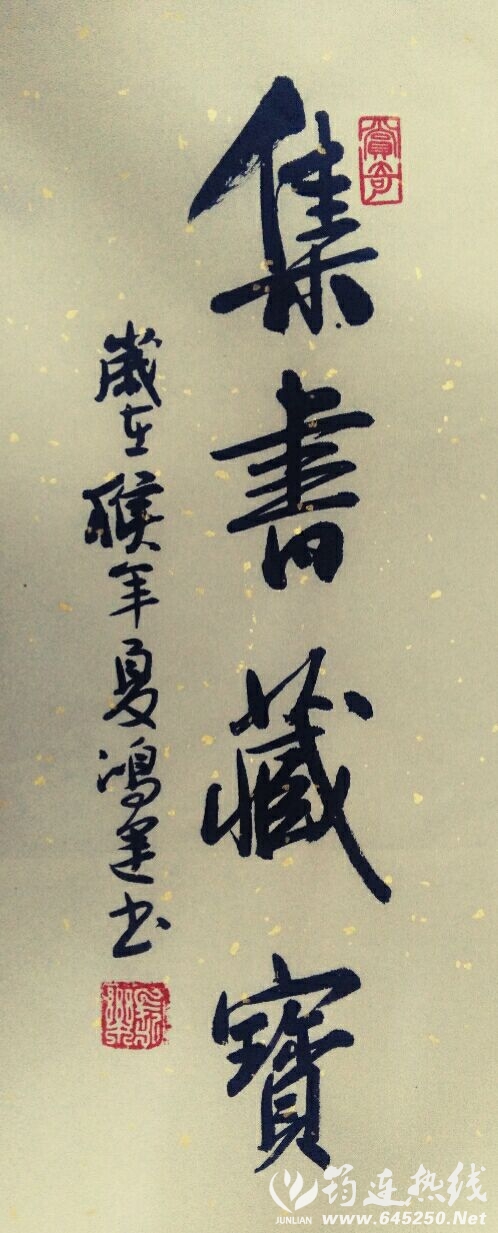 賞奇
集書藏寶
歲在猴年夏鴻书
筠连热线
JUNLIAN www.645250.Net